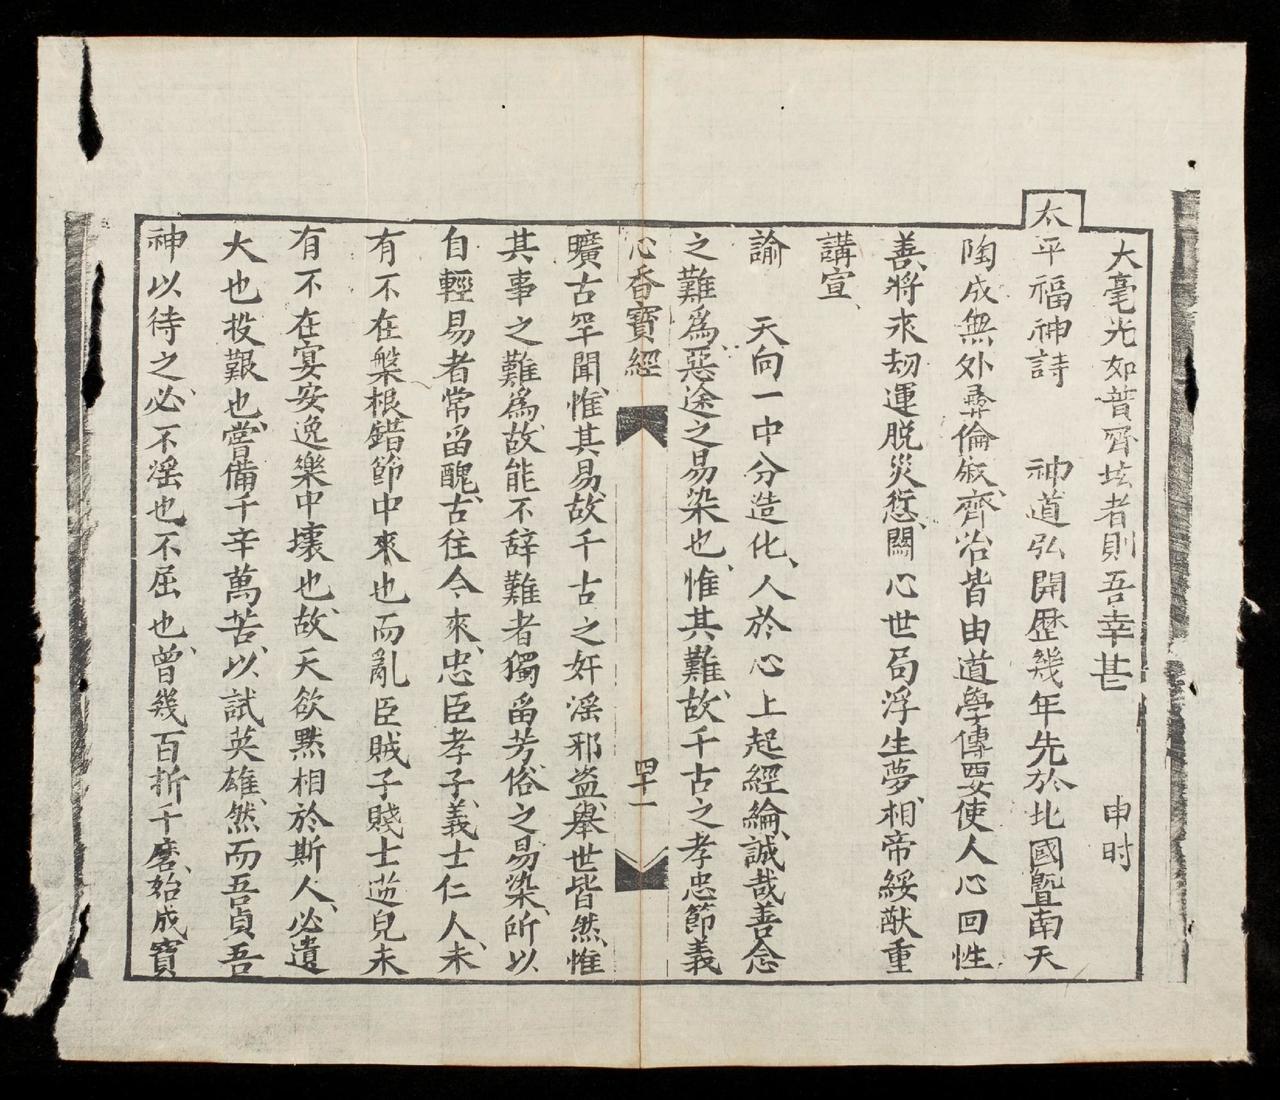 大毫光如普齊坛者則吾幸甚 申时
太平福神詩 神道弘開歷幾年先於北國暨南天
陶成無外彞倫叙齊治皆由道學傳要使人心回性
善將來刼運脱災愆關心世局浮生夢相帝綏猷重
講宣
諭 天向一中分造化人於心上起經綸誠哉善念
之難為惡途之易染也惟其難故千古之孝忠節義
心香寶經 四十一
曠古罕聞惟其易故千古之奸滛邪盗舉世皆然惟
其事之難為故能不辞難者獨畄芳俗之易染所以
自輕易者常畄醜古徃今來忠臣孝子義士仁人未
有不在槃根錯節中來也而亂臣賊子賤士迯兒未
有不在宴安逸樂中壞也故天欲黙相於斯人必遺
大也投艱也嘗備千辛萬苦以試英雄然而吾貞吾
神以待之必不滛也不屈也曾幾百折千磨始成寶